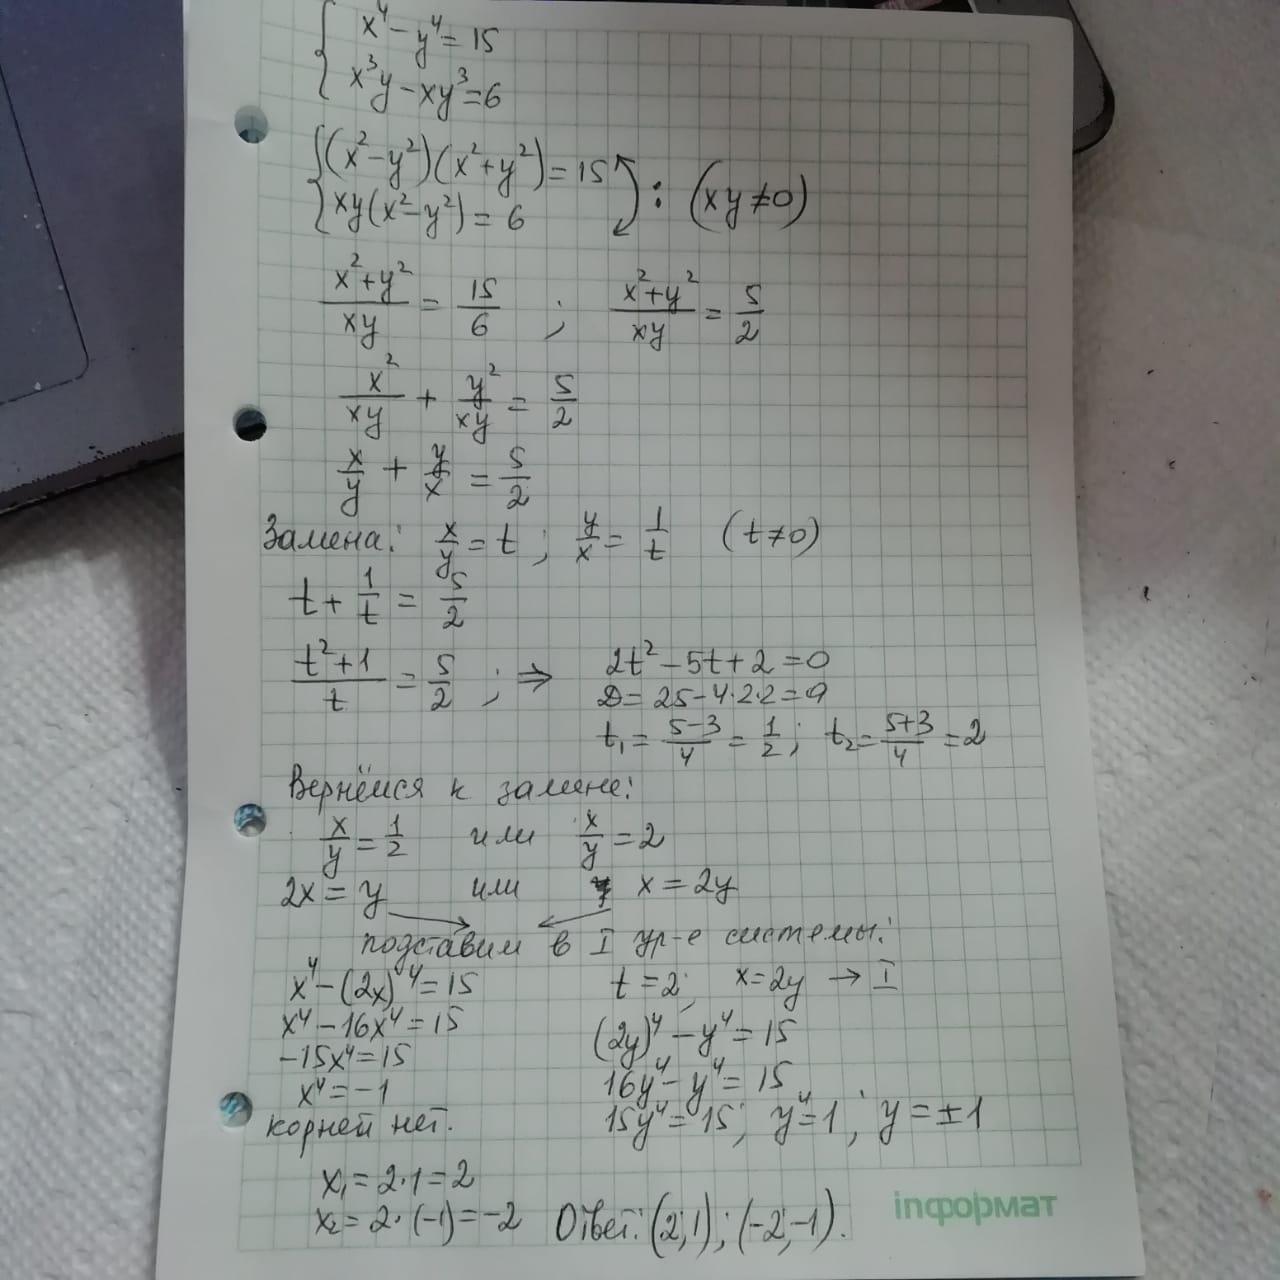 { x⁴ - y⁴ = 15
x³y - xy³ = 6
{ (x² - y²)(x² + y²) = 15
xy(x² - y²) = 6 ) : (xy ≠ 0)
(x² + y²)/(xy) = 15/6 ; (x² + y²)/(xy) = 5/2
x²/(xy) + y²/(xy) = 5/2
x/y + y/x = 5/2
Замена: x/y = t ; y/x = 1/t (t ≠ 0)
t + 1/t = 5/2
(t² + 1)/t = 5/2 ; ⇒ 2t² - 5t + 2 = 0
D = 25 - 4·2·2 = 9
t₁ = (5-3)/4 = 1/2 ; t₂ = (5+3)/4 = 2
Вернёмся к замене:
x/y = 1/2 или x/y = 2
2x = y или x = 2y
подставим в I ур-е системы:
x⁴ - (2x)⁴ = 15 t = 2; x = 2y → I
x⁴ - 16x⁴ = 15 (2y)⁴ - y⁴ = 15
-15x⁴ = 15 16y⁴ - y⁴ = 15
x⁴ = -1 15y⁴ = 15; y⁴ = 1; y = ±1
корней нет.
x₁ = 2·1 = 2
x₂ = 2·(-1) = -2 Ответ: (2;1); (-2;-1).
inформат